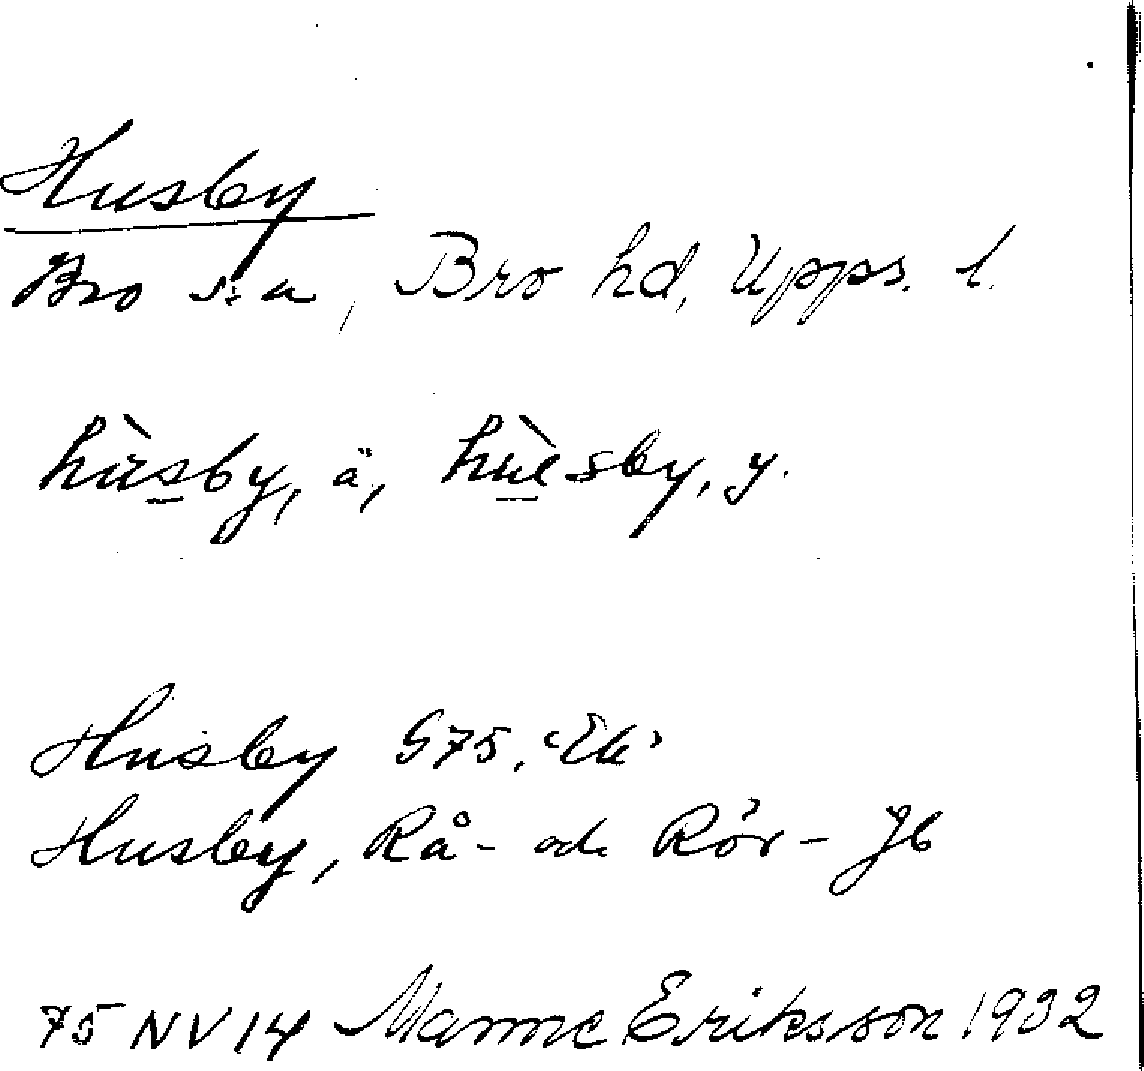 Husby
Bro sn, Bro hd, Upps. l.
hùsby, ä, hùsby, y.
Husby G75, 'Ek'
Husby, Rå- och Rör- Jb
75 NV 14 Manne Eriksson 1932